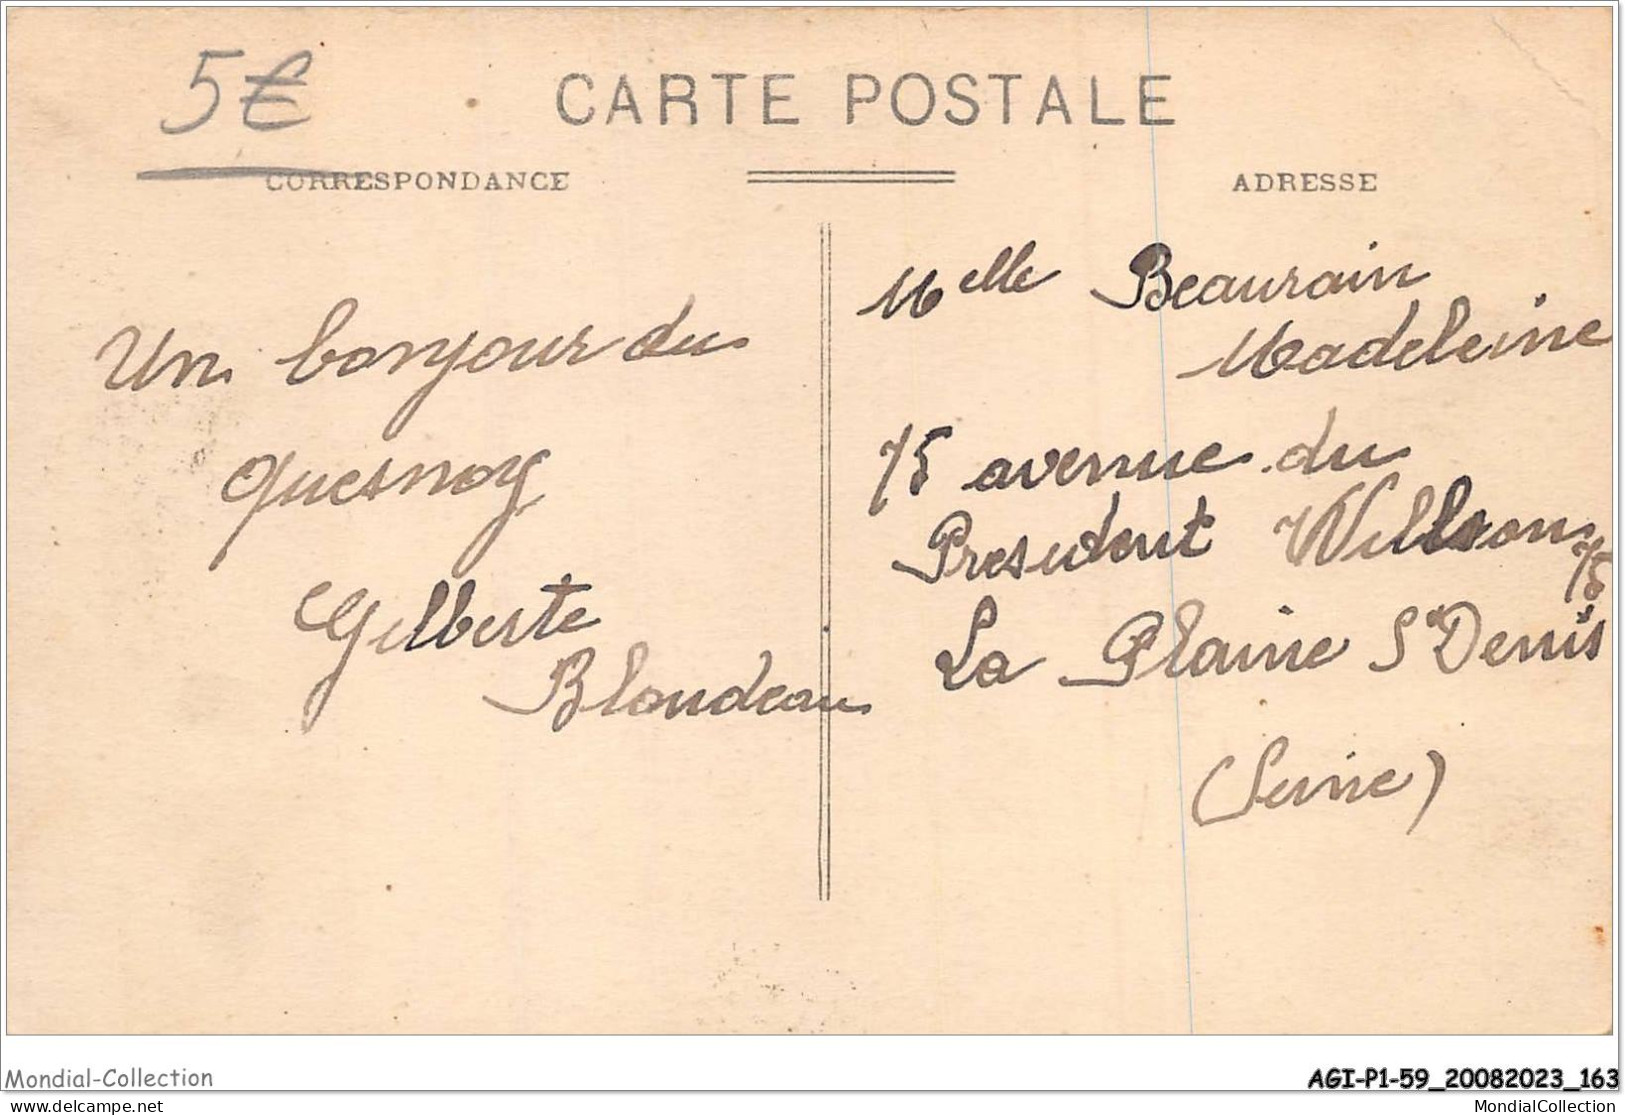 5€
CARTE POSTALE
CORRESPONDANCE
ADRESSE
Un bonjour du
Quesnoy
Gilberte
Blondeau
Melle Beaurain
Madeleine
75 avenue du
President Willson 75
La Plaine St Denis
(Seine)
Mondial-Collection
AGI-P1-59_20082023_163
www.delcampe.net
MondialCollection